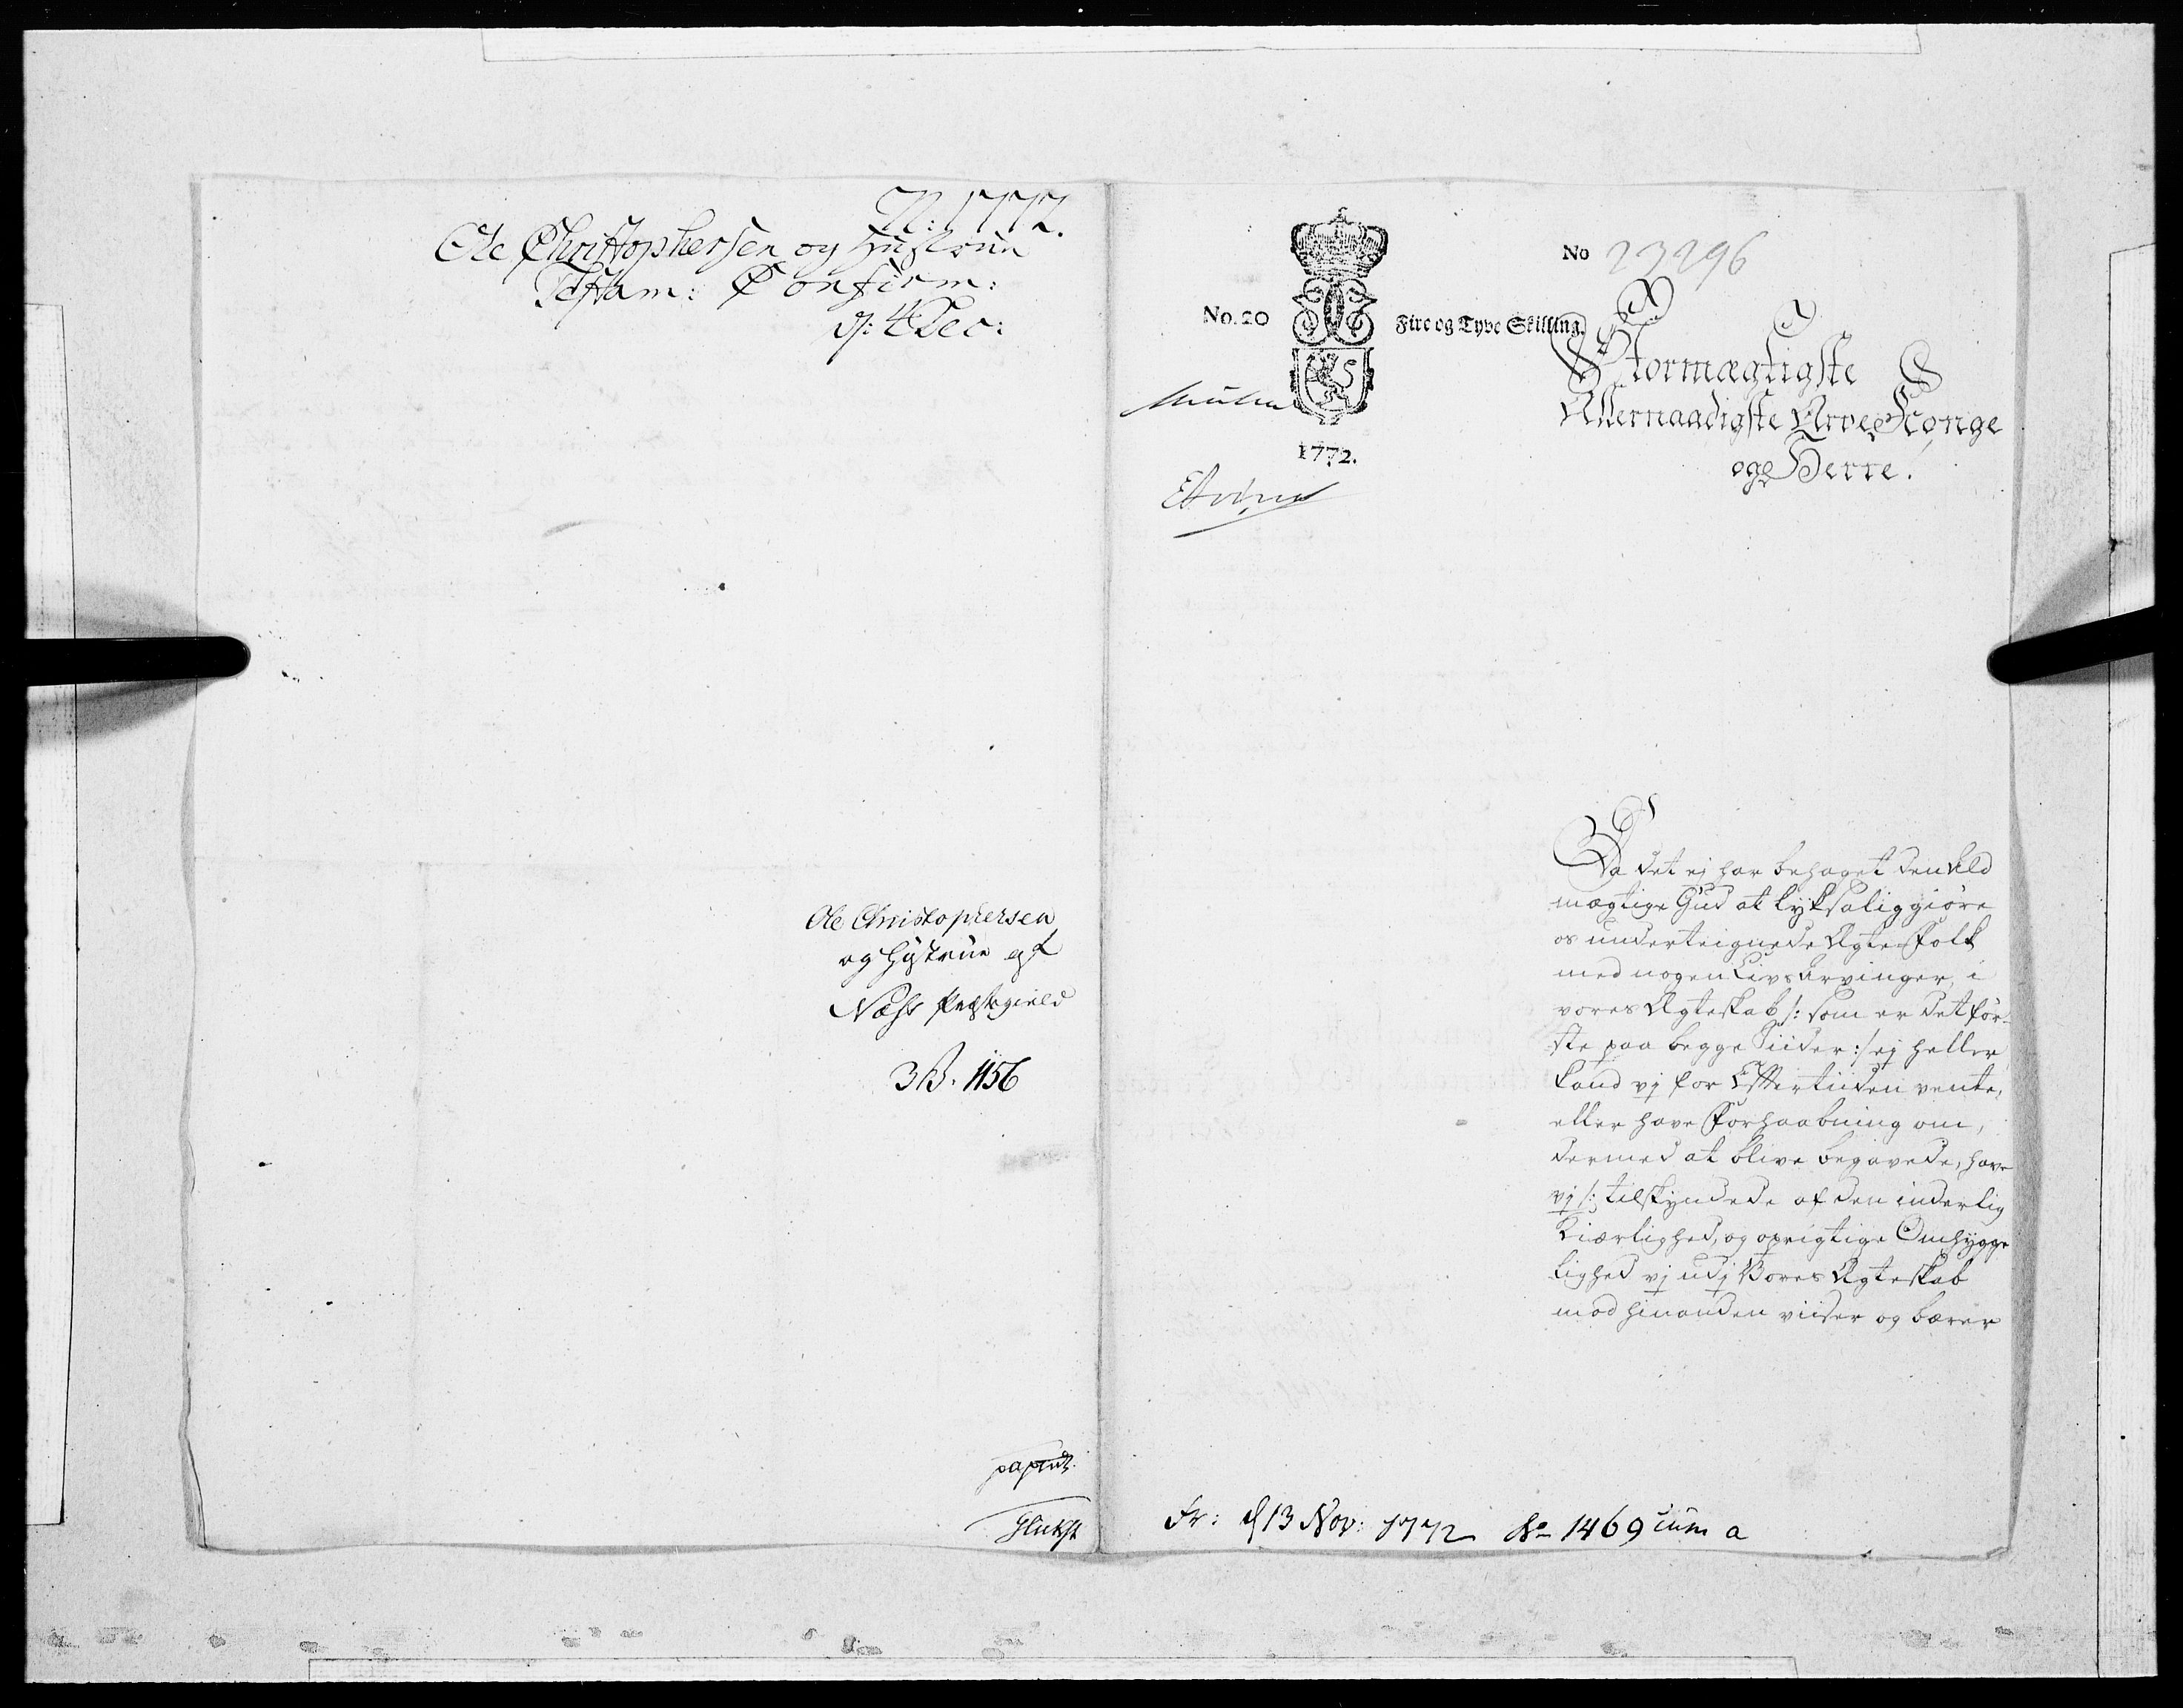 N: 1772.
Ole Christophersen og Hustrue
Testam: Confirm:
d: 4 Dec:
Ole Christophersen
og Hustrue af
Næss Præstegield
3 B. 1156
No 23296
No. 20 Fire og Tyve Skilling.
1772.
Stormægtigste
Allernaadigste Arve Konge
og Herre!
Da det ej har behaget den Ald
mægtige Gud at lyksaliggiøre
os underteignede Ægte Folk
med nogen Livs Arvinger, i
vores Ægteskab /: som er det før-
ste paa begge Siider :/ ej heller
kand vj for Efftertiiden vente,
eller have Forhaabning om,
dermed at blive begavede, have
vj /: tilskyndede af den inderlig
Kiærlighed, og oprigtige Omhygge
lighed vj udj Vores Ægteskab
mod hinanden viiser og bærer
d 13 Nov: 1772 No 1469 cum a